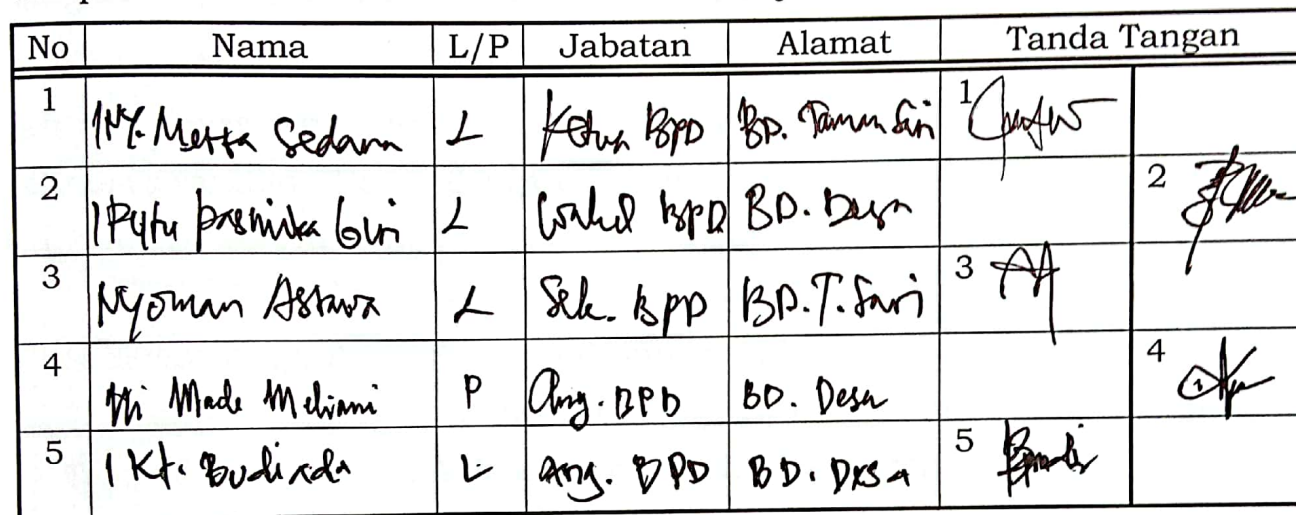 No Nama L/P Jabatan Alamat Tanda Tangan
1 I NY. Merta Sedana L Ketua BPD BD. Taman Sari 1
2 I Putu Dasmika Giri L Wakil BPD BD. Desa 2
3 Nyoman Astawa L Sek. BPD BD. T. Sari 3
4 Ni Made Meliani P Ang. BPD BD. Desa 4
5 I Kt. Budiada L Ang. BPD BD. Desa 5